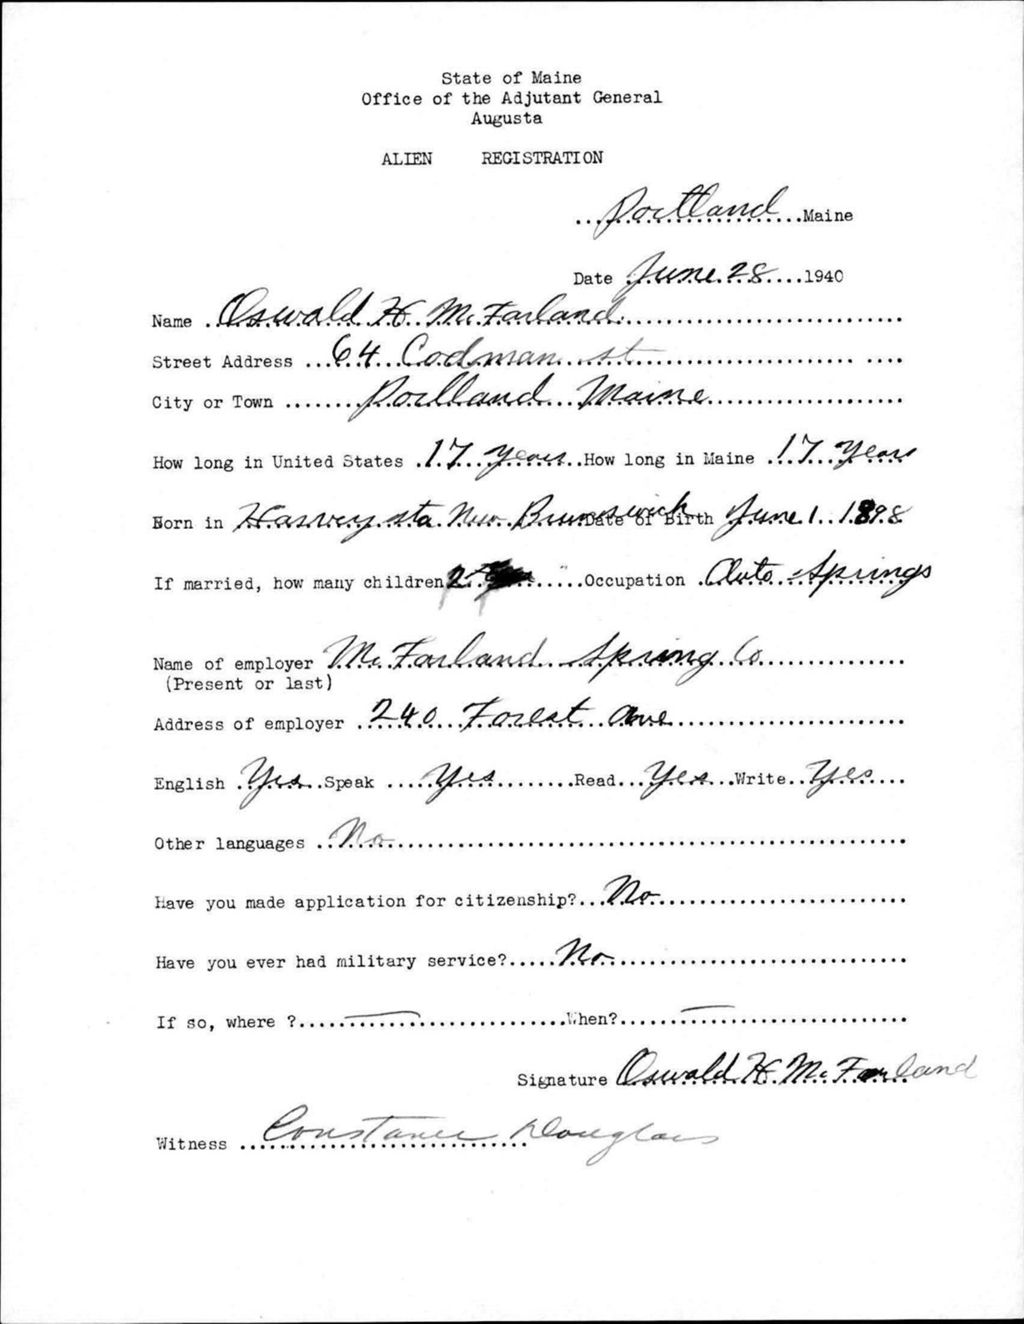 State of Maine
Office of the Adjutant General
Augusta
ALIEN REGISTRATION
...Portland...Maine
Date June 28....1940
Name ..Oswald H. McFarland...
Street Address ...64 Codman st...
City or Town .......Portland Maine...
How long in United States .17 years..How long in Maine .17 years
Born in Harvey sta. New Brunswick Date of Birth June 1. 1898
If married, how many children 2 .....Occupation .Auto Springs
Name of employer McFarland Spring Co...
(Present or last)
Address of employer .240 Forest Ave...
English .Yes..Speak ....Yes........Read...Yes...Write..Yes...
Other languages ..No...
Have you made application for citizenship?...No...
Have you ever had military service?.....No...
If so, where ?.....—.....When?......—.....
Signature Oswald H McFarland
Witness ...Constance Douglass